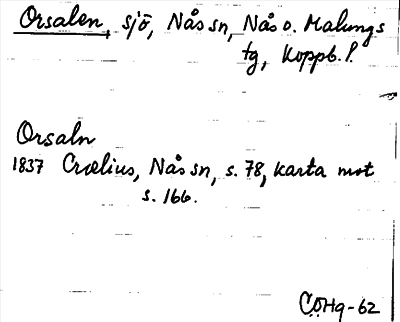 Orsalen, sjö, Nås sn, Nås o. Malungs
tg, Koppb. l.
Orsaln
1837 Crælius, Nås sn, s. 78, karta mot
s. 166.
C.Ö.Hg-62